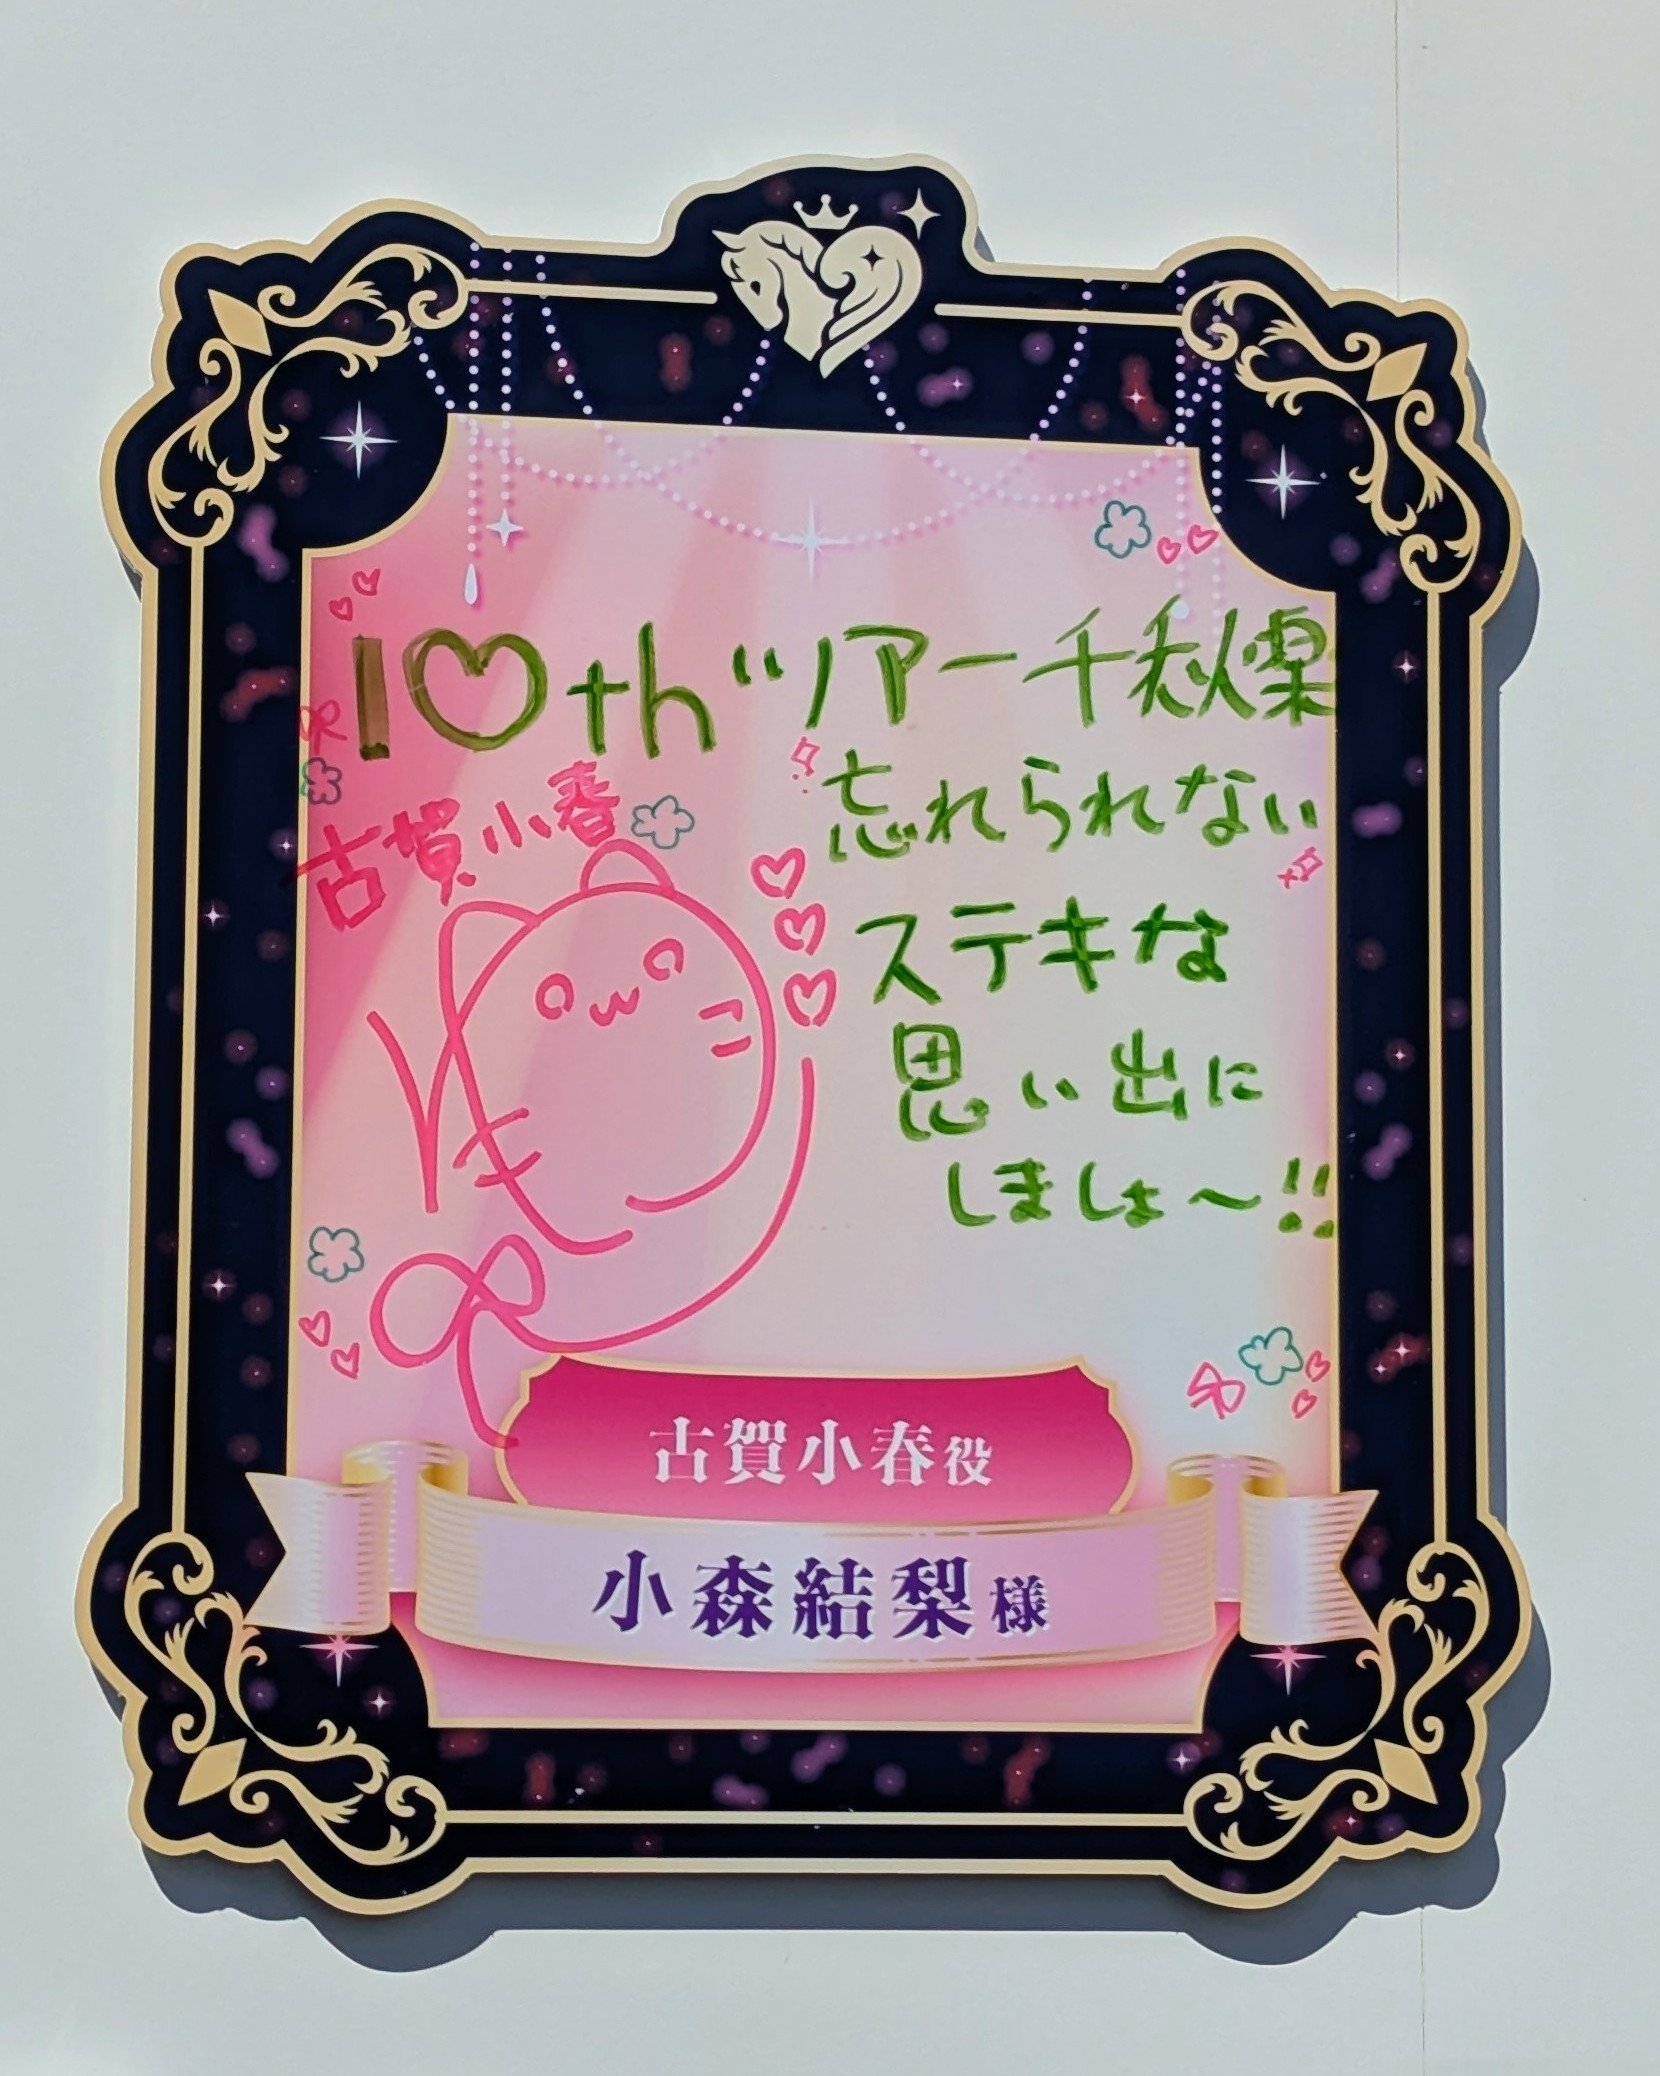 10thツアー千秋楽
忘れられない
ステキな
思い出に
しましょ〜!!
古賀小春
古賀小春役
小森結梨様